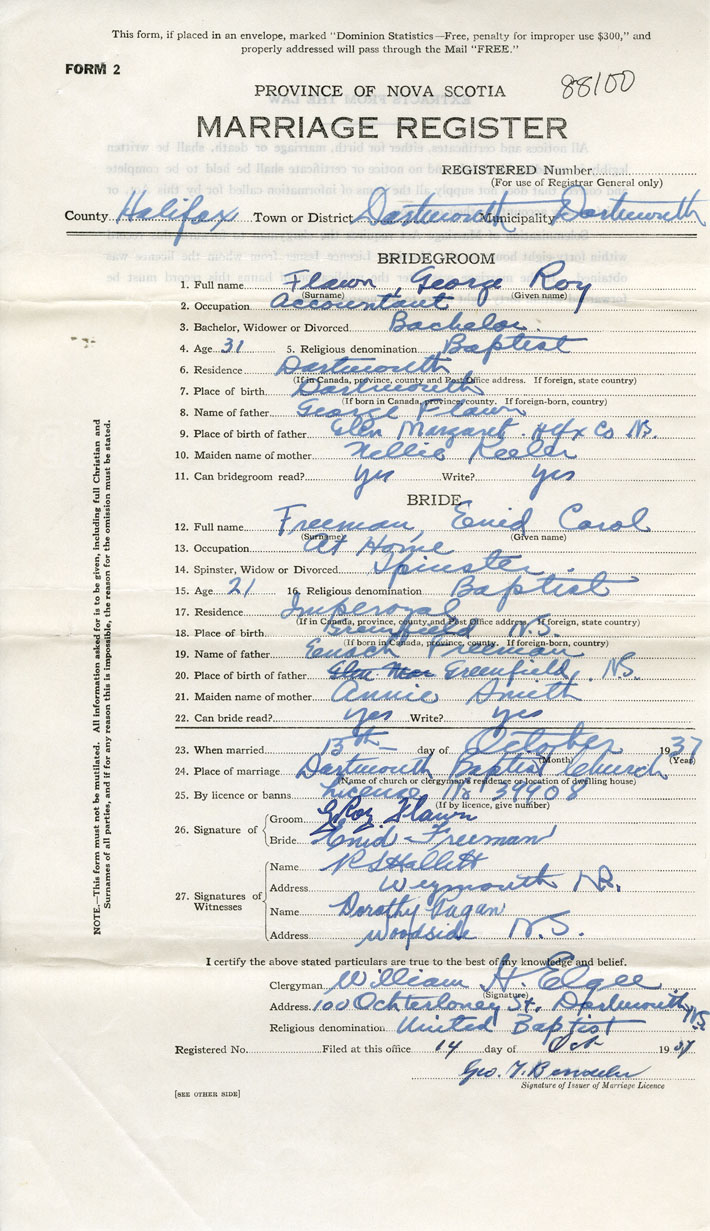 This form, if placed in an envelope, marked "Dominion Statistics—Free, penalty for improper use $300," and
properly addressed will pass through the Mail "FREE."
FORM 2
PROVINCE OF NOVA SCOTIA 88100
MARRIAGE REGISTER
REGISTERED Number
(For use of Registrar General only)
County Halifax Town or District Dartmouth Municipality Dartmouth
BRIDEGROOM
1. Full name Flawn, George Roy
(Surname) (Given name)
2. Occupation Accountant
3. Bachelor, Widower or Divorced Bachelor.
4. Age 31 5. Religious denomination Baptist
6. Residence Dartmouth
(If in Canada, province, county and Post Office address. If foreign, state country)
7. Place of birth Dartmouth
(If born in Canada, province, county. If foreign-born, country)
8. Name of father George Flawn
9. Place of birth of father Glen Margaret. Hfx Co N.S.
10. Maiden name of mother Nellie Keeler
11. Can bridegroom read? yes Write? yes
BRIDE
12. Full name Freeman, Enid Carol
(Surname) (Given name)
13. Occupation At Home
14. Spinster, Widow or Divorced Spinster.
15. Age 21 16. Religious denomination Baptist
17. Residence Imperoyal
(If in Canada, province, county and Post Office address. If foreign, state country)
18. Place of birth Greenfield N.S.
(If born in Canada, province, county. If foreign-born, country)
19. Name of father Freeman
20. Place of birth of father Glen Mar Greenfield. N.S.
21. Maiden name of mother Annie Smith
22. Can bride read? yes Write? yes
23. When married 13th day of October 1937
(Month) (Year)
24. Place of marriage Dartmouth Baptist Church
(Name of church or clergyman's residence or location of dwelling house)
25. By licence or banns License No 39908
(If by licence, give number)
26. Signature of Groom G Roy Flawn
Bride Enid Freeman
27. Signatures of Witnesses Name R S Hallett
Address Weymouth N.S.
Name Dorothy Pagan
Address Woodside N.S.
I certify the above stated particulars are true to the best of my knowledge and belief.
Clergyman William H. Elgee
(Signature)
Address 100 Ochterloney St. Dartmouth N.S.
Religious denomination United Baptist
Registered No. Filed at this office 14 day of Oct 1937
Geo.
Signature of Issuer of Marriage Licence
[SEE OTHER SIDE]
NOTE.—This form must not be mutilated. All information asked for is to be given, including full Christian and
Surnames of all parties, and if for any reason this is impossible, the reason for the omission must be stated.